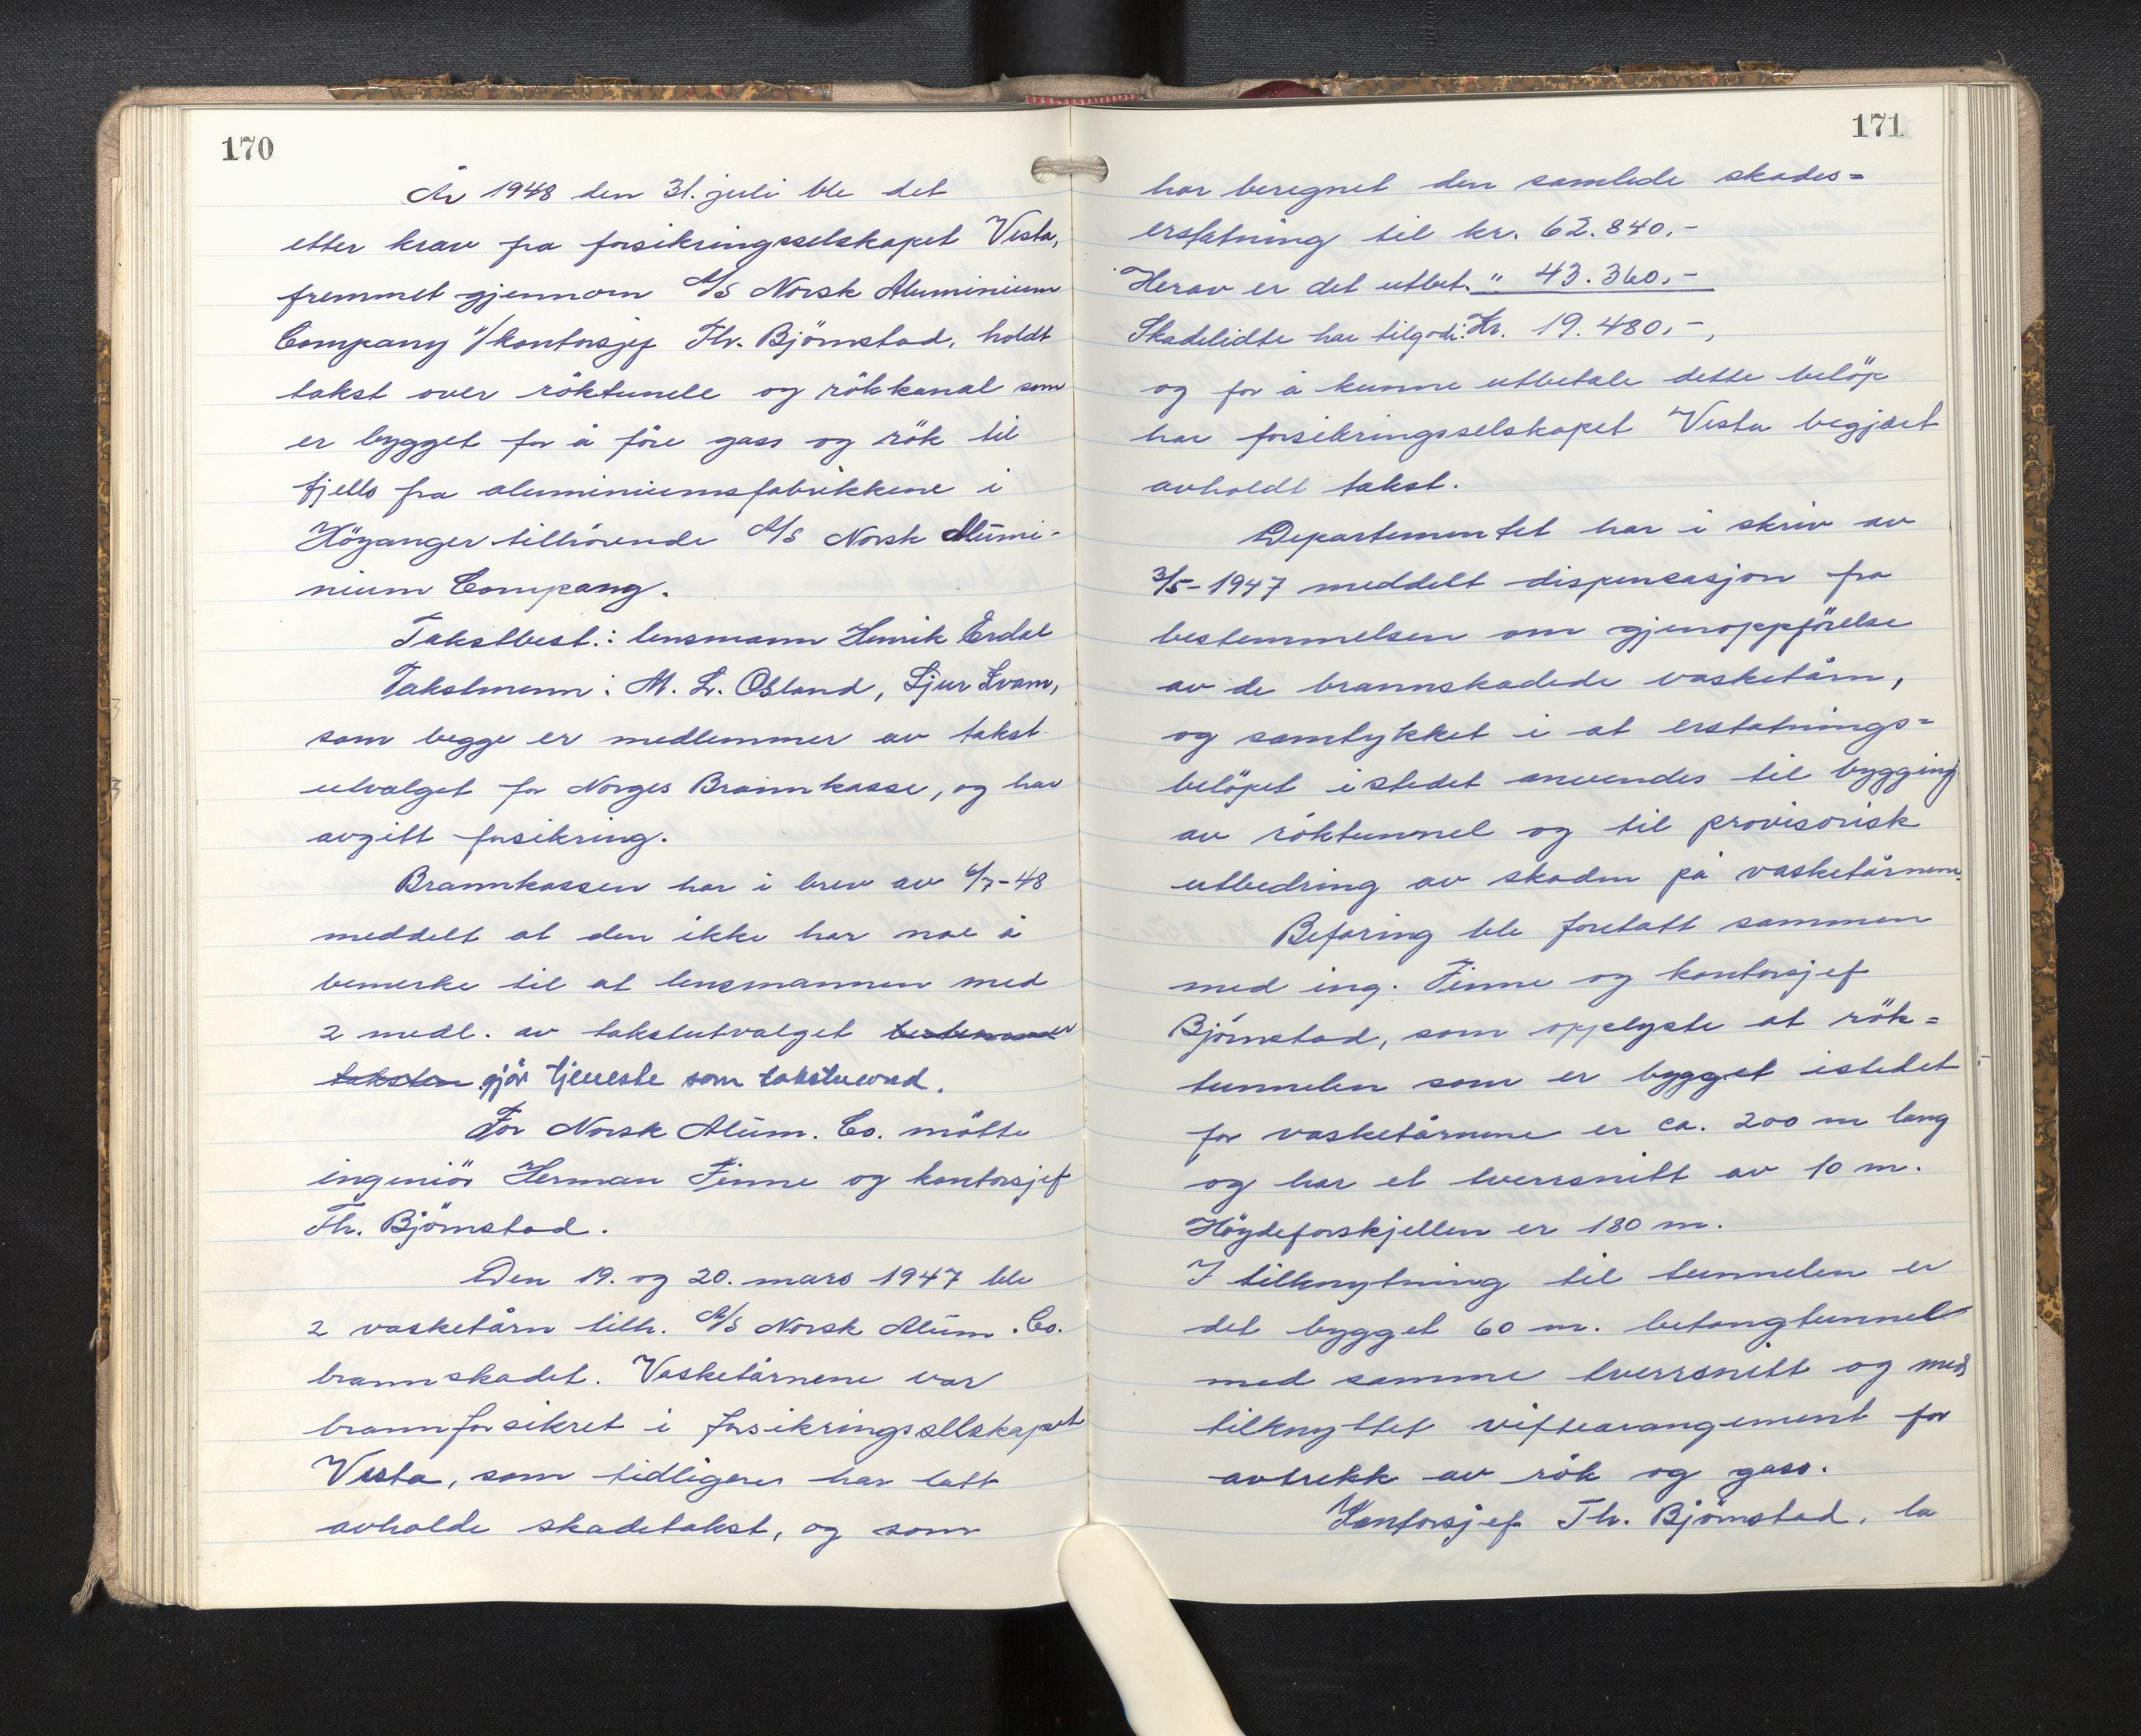 170
År 1948 den 31. juli ble det
etter krav fra forsikringsselskapet Vesta,
fremmet gjennom A/S Norsk Aluminium
Company v/kontorsjef Th. Björnstad, holdt
takst over röktunele og rökkanal som
er bygget for å före gass og rök til
fjells fra aluminiumsfabrikkene i
Höyanger tilhörende A/S Norsk Alumi-
nium Company.
Takstbest.: lensmann Henrik Erdal
Takstmenn: M. L. Osland, Sjur Kvam,
som begge er medlemmer av takst
utvalget for Norges Brannkasse, og har
avgitt forsikring.
Brannkassen har i brev av 6/7-48
meddelt at den ikke har noe å
bemerke til at lensmannen med
2 medl. av takstutvalget
taksten gjör tjeneste som takstnevnd.
For Norsk Alum. Co. mötte
ingeniör Herman Finne og kontorsjef
Th. Björnstad.
Den 19. og 20. mars 1947 ble
2 vasketårn tilh. A/S Norsk Alum. Co.
brannskadet. Vasketårnene var
brannforsikret i forsikringssellskapet
Vesta, som tidligere har latt
avholde skadetakst, og som
171
har beregnet den samlede skades=
erstatning til kr. 62.840.-
Herav er det utbet. " 43.360,-
Skadelidte har tilgode: Kr. 19.480,-,
og for å kunne utbetale dette belöp
har forsikringsselskapet Vesta begjært
avholdt takst.
Departementet har i skriv av
3/5-1947 meddelt dispensasjon fra
bestemmelsen om gjenoppförelse
av de brannskadede vasketårn,
og samtykket i at erstatnings=
belöpet istedet anvendes til bygging
av röktunnel og til provisorisk
utbedring av skaden på vasketårnene.
Befaring ble foretatt sammen
med ing. Finne og kontorsjef
Björnstad, som opplyste at rök=
tunnelen som er bygget istedet
for vasketårnene er ca. 200 m lang
og har et tverrsnitt av 10 m.
Höydeforskjellen er 180 m.
I tilknytning til tunnelen er
det bygget 60 m. betongtunnel
med samme tverrsnitt og med
tilknyttet viftearangement for
avtrekk av rök og gass.
Kontorsjef Th. Björnstad, la